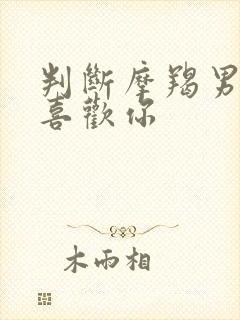 判斷摩羯男
喜歡你
木雨相